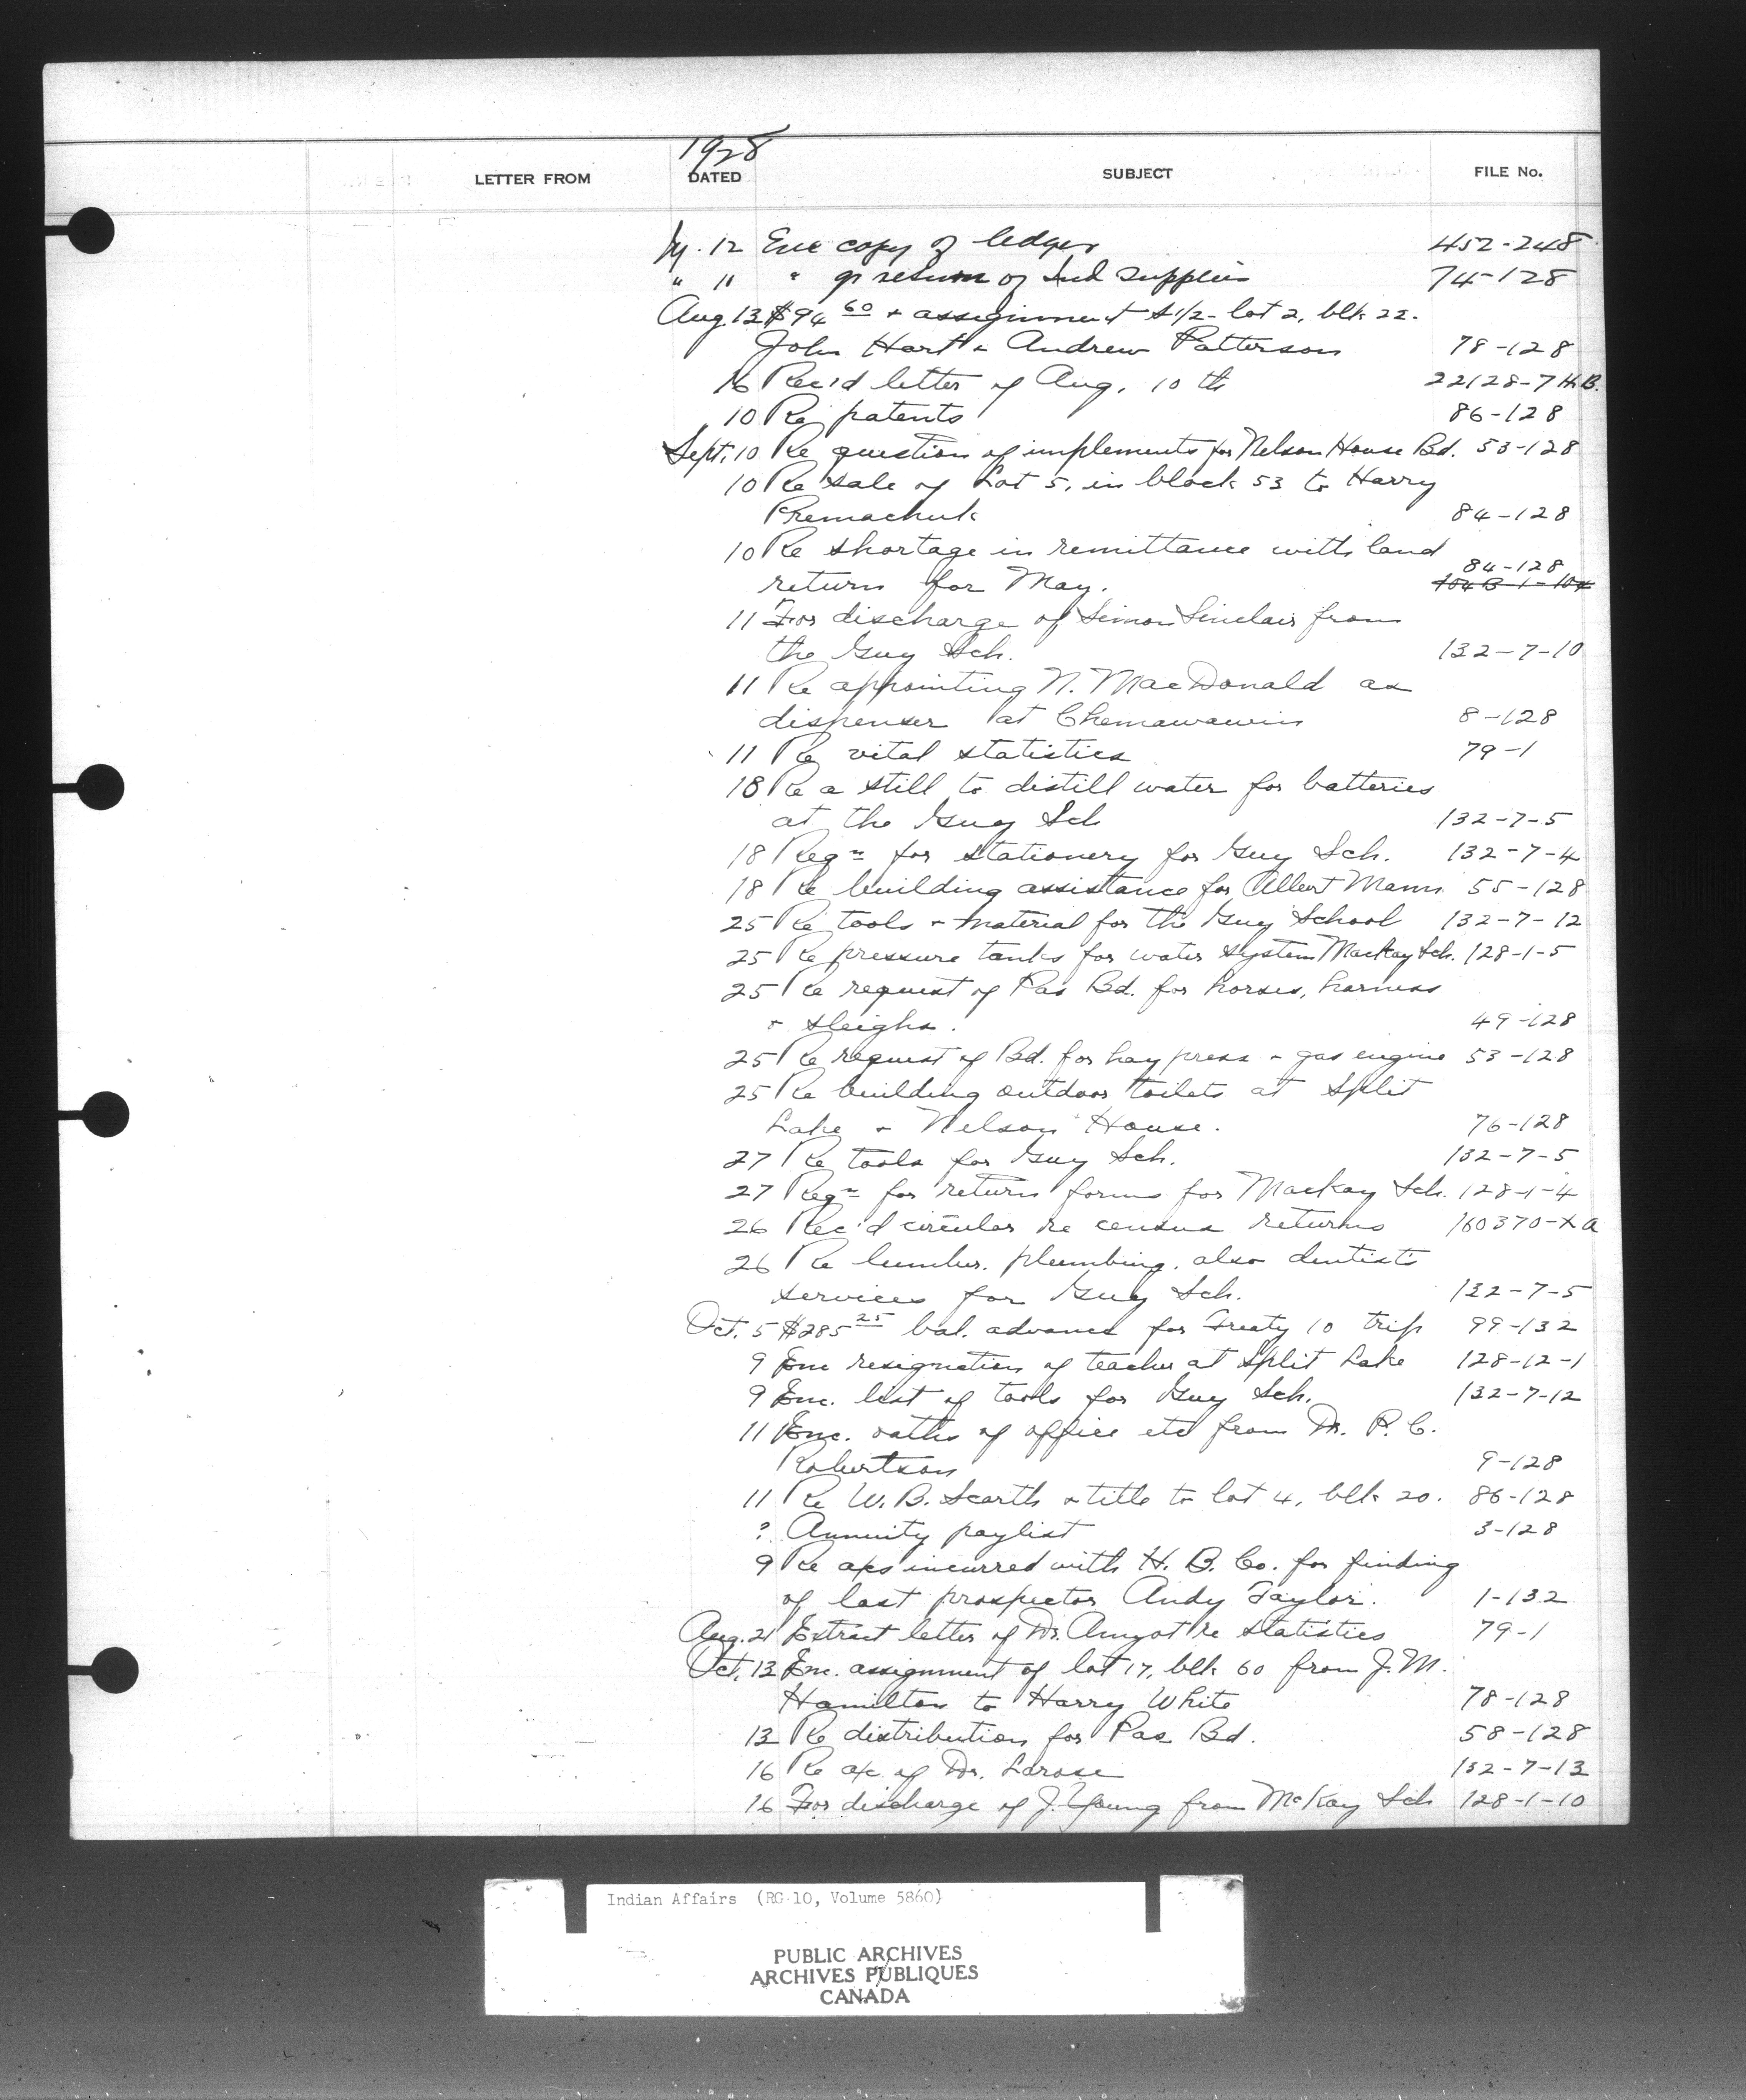 1928
LETTER FROM DATED SUBJECT FILE No.
Jy. 12 Enc copy of ledger 452-248
" 11 " qr return of Ind supplies 74-128
Aug. 13 $94 60 + assignment S 1/2 - lot 2, blk 22.
John Hart + Andrew Patterson 78-128
16 Rec'd letter of Aug. 10 th 22128-7 H.B.
10 Re patents 86-128
Sept. 10 Re question of implements for Nelson House Bd. 53-128
10 Re sale of Lot 5, in block 53 to Harry
Premachuk 84-128
10 Re shortage in remittance with land
84-128
return for May.
11 For discharge of Simon Sinclair from
the Guy Sch. 132-7-10
11 Re appointing N. MacDonald as
dispenser at Chemawawin 8-128
11 Re vital statistics 79-1
18 Re a still to distill water for batteries
at the Guy Sch 132-7-5
18 Reqn for stationery for Guy Sch. 132-7-4
18 Re building assistance for Albert Mann 55-128
25 Re tools + material for the Guy School 132-7-12
25 Re pressure tanks for water system MacKay Sch. 128-1-5
25 Re request of Pas Bd. for horses, harness
+ sleighs. 49-128
25 Re request of Bd. for hay press + gas engine 53-128
25 Re building outdoor toilets at Split
Lake + Nelson House. 76-128
27 Re tools for Guy Sch. 132-7-5
27 Reqn for return forms for Mackay Sch. 128-1-4
26 Rec'd circular re census returns 160370-X a
26 Re lumber, plumbing, also dentist's
services for Guy Sch. 132-7-5
Oct. 5 $285 25 bal. advanced for Treaty 10 trip 99-132
9 Enc resignation of teacher at Split Lake 128-12-1
9 Enc. list of tools for Guy Sch. 132-7-12
11 Enc. oaths of office etc from Dr. P. C.
Robertson 9-128
11 Re W. B. Scarth + title to lot 4, blk 20. 86-128
? Annuity paylist 3-128
9 Re a/cs incurred with H. B. Co. for finding
of lost prospector Andy Taylor. 1-132
Aug. 21 Extract letter of Dr. Amyot re statistics 79-1
Oct. 13 Enc. assignment of lot 17, blk 60 from J. M.
Hamilton to Harry White 78-128
13 Re distribution for Pas Bd. 58-128
16 Re a/c of Dr. Larose 132-7-13
16 For discharge of J. Young from McKay Sch 128-1-10
Indian Affairs (RG 10, Volume 5860)
PUBLIC ARCHIVES
ARCHIVES PUBLIQUES
CANADA